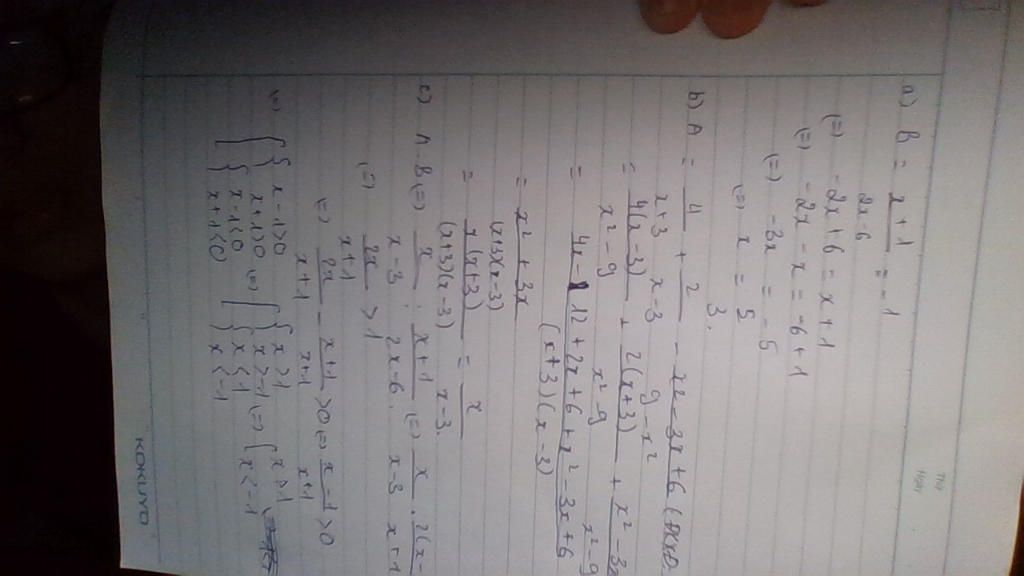 a) B = x + 1 / 2x - 6 = -1
(=) -2x + 6 = x + 1
(=) -2x - x = -6 + 1
(=) -3x = -5
(=) x = 5 / 3.
b) A = 4 / x + 3 + 2 / x - 3 - x2 - 3x + 6 / 9 - x²
= 4(x - 3) / x² - 9 + 2(x + 3) / x² - 9 + x² - 3x / x² - 9
= 4x - 12 + 2x + 6 + x² - 3x + 6 / (x + 3)(x - 3)
= x² + 3x / (x+3)(x-3)
= x(x+3) / (x+3)(x-3) = x / x - 3.
c) A . B (=) x / x - 3 : x + 1 / 2x - 6 . (=) x / x - 3 . 2(x - / x + 1
(=) 2x / x + 1 > 1
(=) 2x / x + 1 - x + 1 / x + 1 > 0 (=) x - 1 / x + 1 > 0
(=) [ { x - 1 > 0
x + 1 > 0
{ x - 1 < 0
x + 1 < 0
(=) [ { x > 1
x > -1
{ x < 1
x < -1
(=) [ x > 1
x < -1
KOKUYO